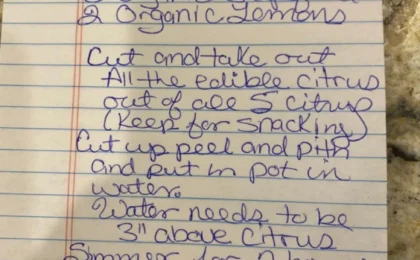 2 Organic Lemons
Cut and take out
All the edible citrus
out of all 5 citrus
(Keep for snacking)
Cut up peel and pith
and put in pot in
water.
Water needs to be
3" above citrus
Simmer for